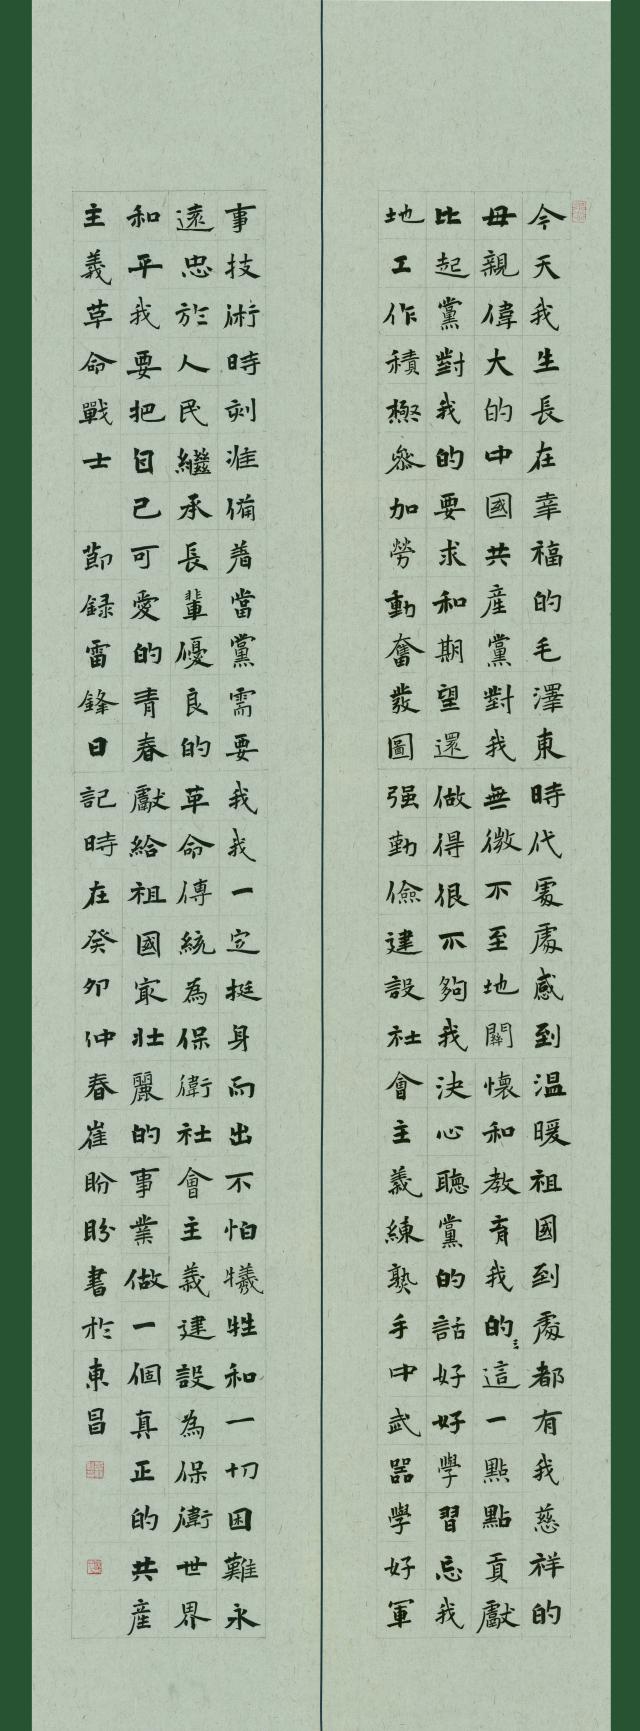 今天我生長在幸福的毛澤東時代處處感到温暖祖國到處都有我慈祥的
母親偉大的中國共産黨對我無微不至地關懷和教育我的這一點點貢獻
比起黨對我的要求和期望還做得很不夠我決心聽黨的話好好學習忘我
地工作積極參加勞動奮發圖强勤儉建設社會主義練熟手中武器學好軍
事技術時刻准備着當黨需要我我一定挺身而出不怕犧牲和一切困難永
遠忠於人民繼承長輩優良的革命傳統為保衛社會主義建設為保衛世界
和平我要把自己可愛的青春獻給祖國最壯麗的事業做一個真正的共産
主義革命戰士 節録雷鋒日記時在癸卯仲春崔盼盼書於東昌